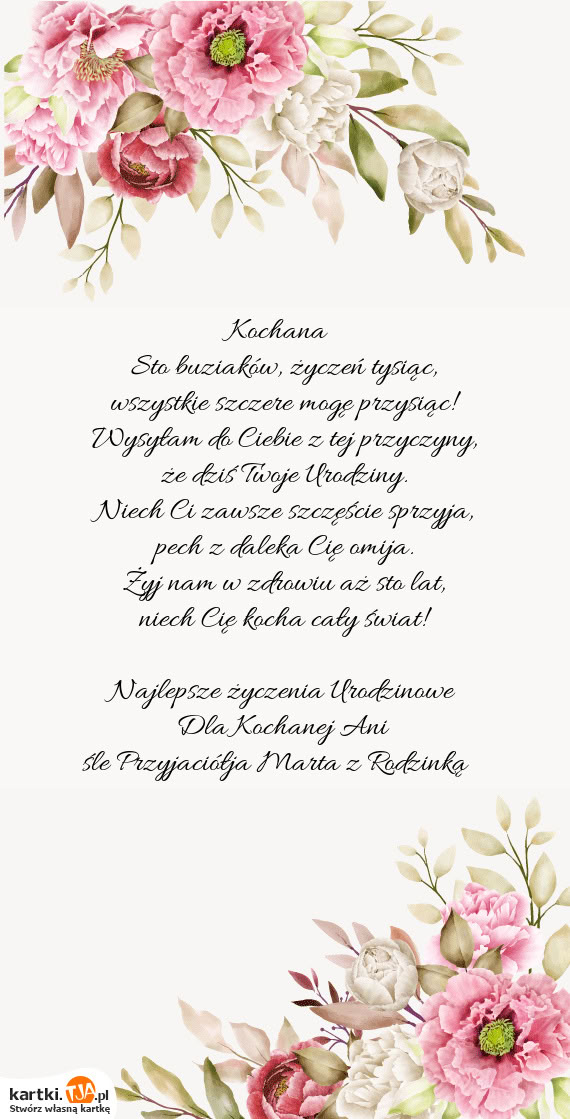 Kochana
Sto buziaków, życzeń tysiąc,
wszystkie szczere mogę przysiąc!
Wysyłam do Ciebie z tej przyczyny,
że dziś Twoje Urodziny.
Niech Ci zawsze szczęście sprzyja,
pech z daleka Cię omija.
Żyj nam w zdrowiu aż sto lat,
niech Cię kocha cały świat!
Najlepsze życzenia Urodzinowe
Dla Kochanej Ani
śle Przyjaciółja Marta z Rodzinką
kartki.TJA.pl
Stwórz własną kartkę